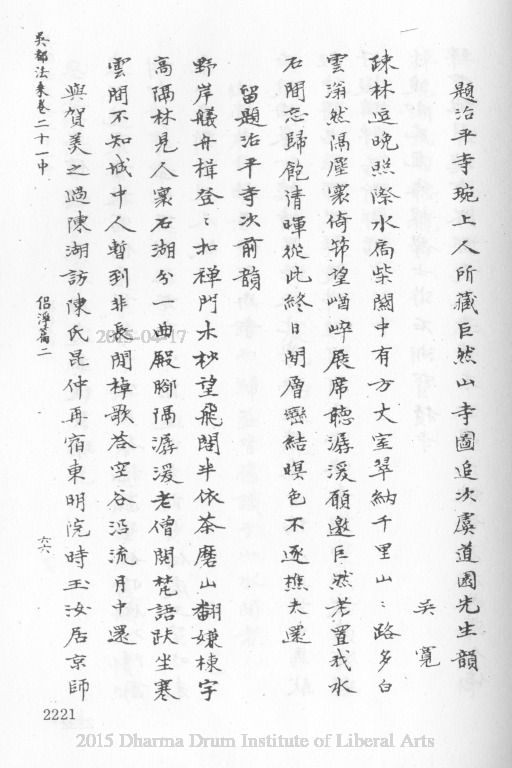 題治平寺琬上人所藏巨然山寺圖追次虞道園先生韻
吳寬
疎林逗晚照際水扃柴關中有方丈室翠納千里山:路多白
雲滃然隔塵寰倚笻望崷崪展席聽潺湲願邀巨然老置我水
石間忘歸飽清暉從此終日閒層巒結暝色不逐樵夫還
留題治平寺次前韻
野岸艤舟楫登:扣禪門木杪望飛閣半依茶磨山翻嫌棟宇
高隔林見人寰石湖分一曲殿腳隔潺湲老僧閱梵語趺坐寒
雲間不知城中人暫到非長閒棹歌荅空谷沿流月中還
與賀美之過陳湖訪陳氏昆仲再宿東明院時玉汝居京師
吳都法乘卷二十一中
侣淨篇二
六六
2221
2015-04-17
2015 Dharma Drum Institute of Liberal Arts